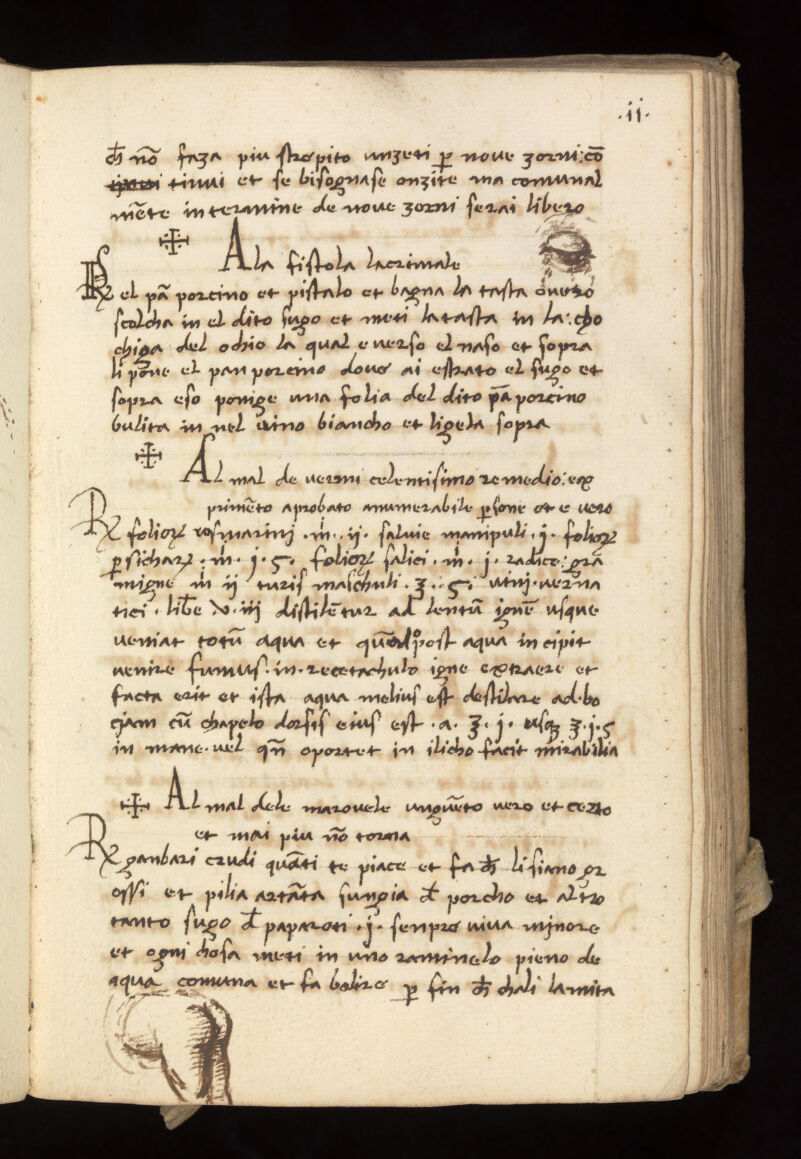 .ii.
ch̄ nō faza piu strepito unzeti p nove zorni: cō
tinui et se bisognase onzite ma comunal
mēte in termine de nove zorni serai libero
Ala fistola lacrimale
Rx el pā porcino et pistalo et bagna la tasta overo
scolcha in el dito sugo et meti la tasta in la: cho
chiga del ochio la qual e verso el naso et sopra
li pone el pan porcino dove ai estrato el sugo et
sopra eso ponige una folia del dito pā porcino
bulita in nel vino biancho et ligela sopra
Al mal de vermi celentisimo remedio: ex
primēto aprobato anumerabile psone et e vero
Rx folioꝝ rosmarinj .m̄. ij. salvie manipuli .j. folioꝝ
psichaꝝ .m̄. j. ς. folioꝝ salici .m̄. j. radice: grā
migne m̄ ii turis maschuli . ʒ. ς. vinj. verna
tici . libe x. iij distilētur ad lentū ignē usque
veniat totū aqua et post aqua incipit
venire fumus. in. recetachulo igne extraere et
facta erit et ista aqua melius est destilare ad. bo
ciam cū chapelo dorsis eius est .a. ʒ. j. usqꝫ ʒ. j. ς
in mane. vel qn̄ oportet in ilicho facit mirabilia
Al mal dele marovele unguēto vero et certo
et mai piu nō torna
Rx ganbari crudi quāti te piace et fa ch̄ li siano gr
ossi et pilia artāta sungia d̄ porcho et altro
tanto sugo d̄ paparoti .j. senpre viva mjnore
et ogni chosa meti in uno raminelo pieno de
aqua comuna et fa bolire p fin ch̄ chali la mita